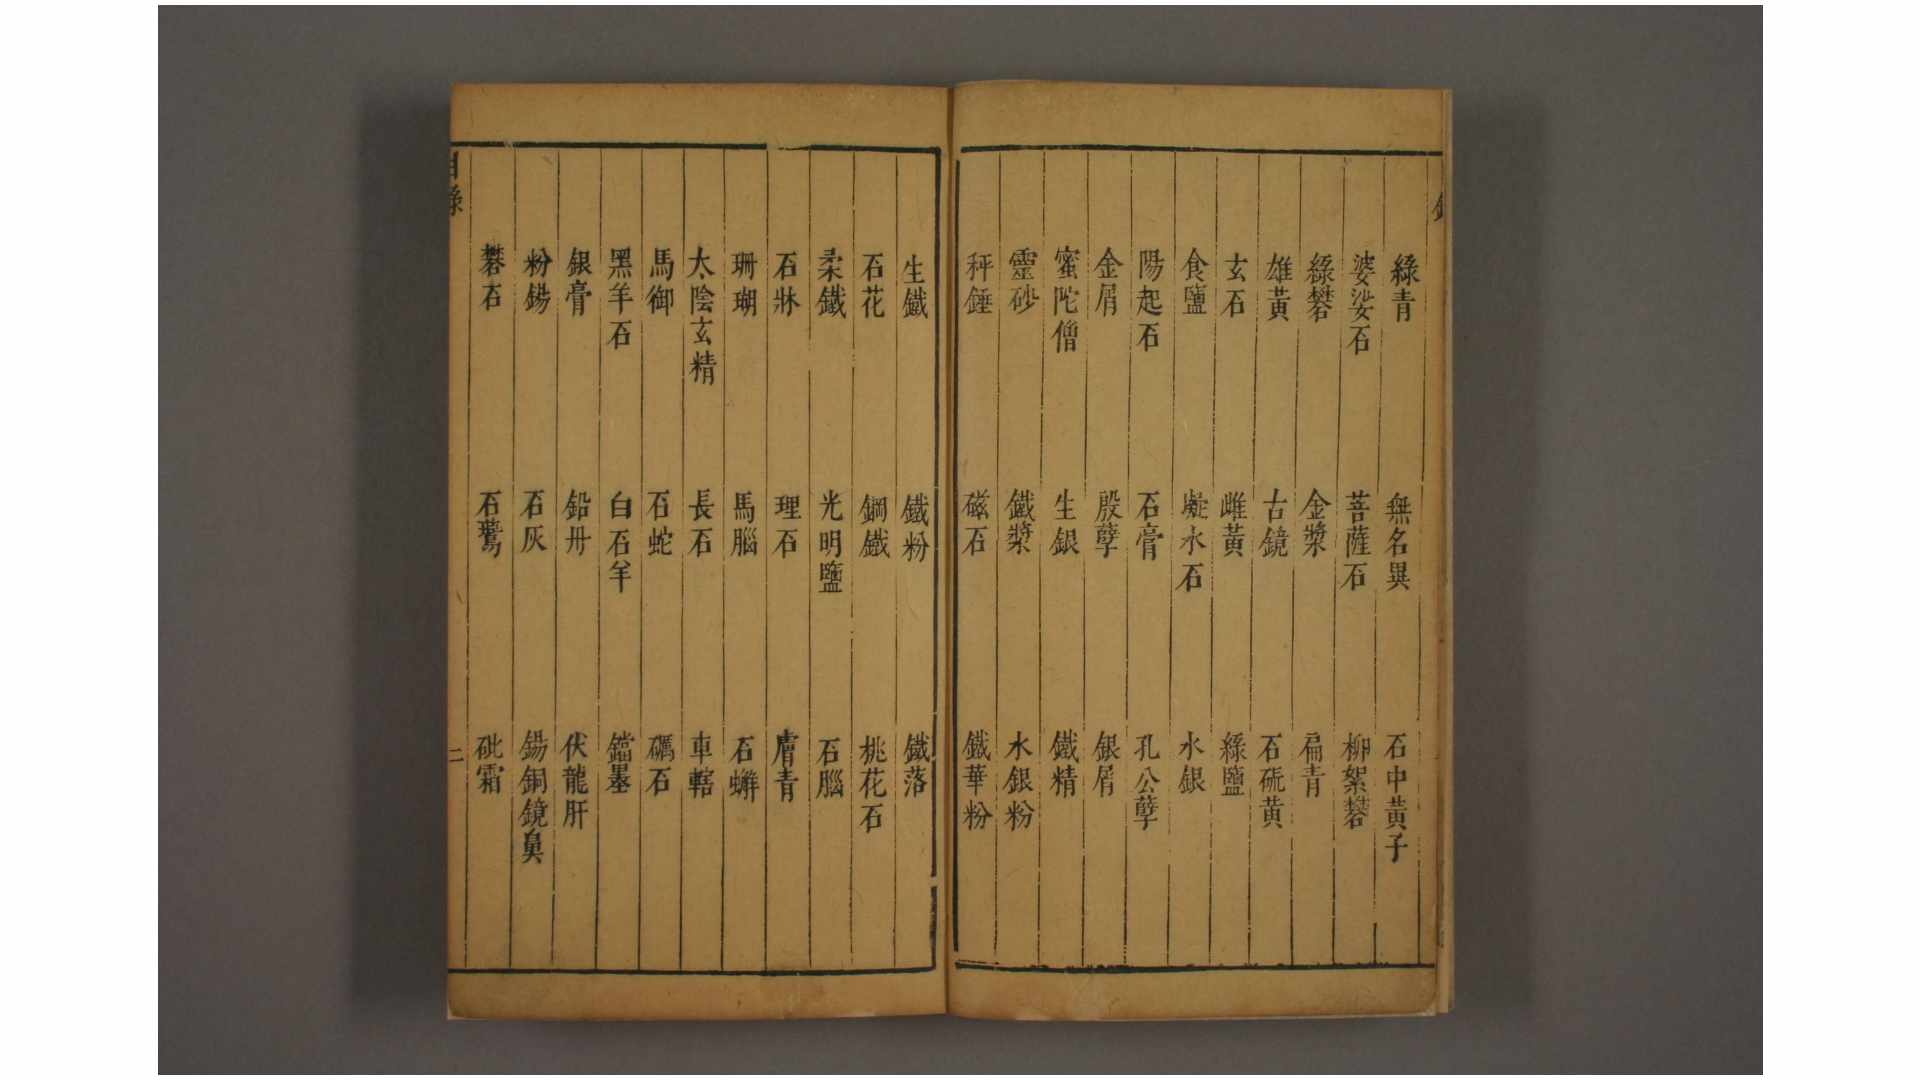 綠青　無名異　石中黃子
婆娑石　菩薩石　柳絮礬
綠礬　金漿　扁青
雄黃　古鏡　石硫黃
玄石　雌黃　綠鹽
食鹽　凝水石　水銀
陽起石　石膏　孔公孽
金屑　殷孽　銀屑
蜜陀僧　生銀　鐵精
靈砂　鐵漿　水銀粉
秤錘　磁石　鐵華粉
生鐵　鐵粉　鐵落
石花　鋼鐵　桃花石
柔鐵　光明鹽　石腦
石牀　理石　膚青
珊瑚　馬腦　石蠏
太陰玄精　長石　車轄
馬御　石蛇　礪石
黑羊石　白石羊　鐺墨
銀膏　鉛丹　伏龍肝
粉錫　石灰　錫銅鏡鼻
礬石　砒霜
目錄
二